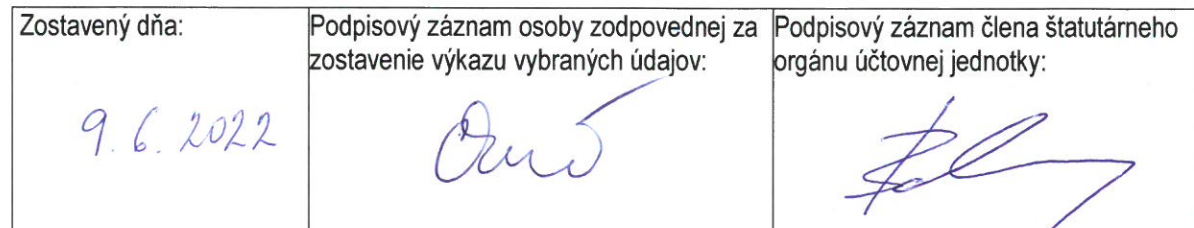 Zostavený dňa:
Podpisový záznam osoby zodpovednej za
zostavenie výkazu vybraných údajov:
Podpisový záznam člena štatutárneho
orgánu účtovnej jednotky:
9. 6. 2022